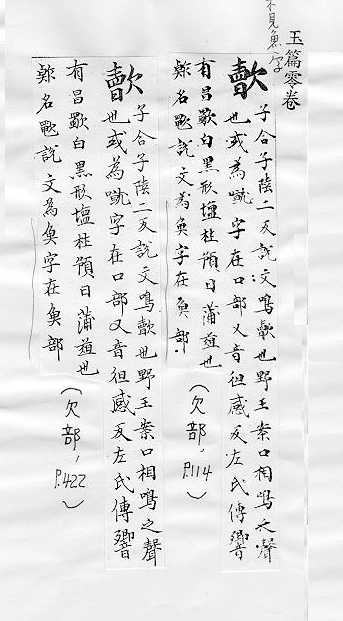 玉篇零卷
不見魚字
歜 子合子陸二反說文鳴歜也野王案口相鳴之聲
也或為噈字在口部又音徂感反左氏傳響
有昌歜白黑形塩杜預曰蒲葅也
歍名歜說文為奐字在奐部
（欠部，P.114）
歜 子合子陸二反說文鳴歜也野王案口相鳴之聲
也或為噈字在口部又音徂感反左氏傳響
有昌歜白黑形塩杜預曰蒲葅也
名歜說文為奐字在奐部
（欠部，P.422）